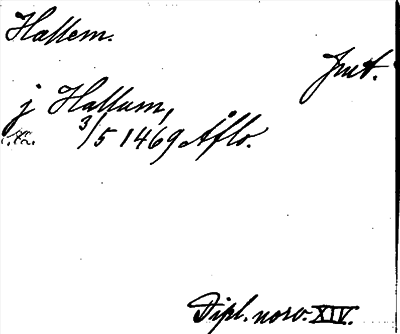 Hallem.
Innt.
j Hallum,
3/5 1469 Åflo.
Dipl. norv. XIV.